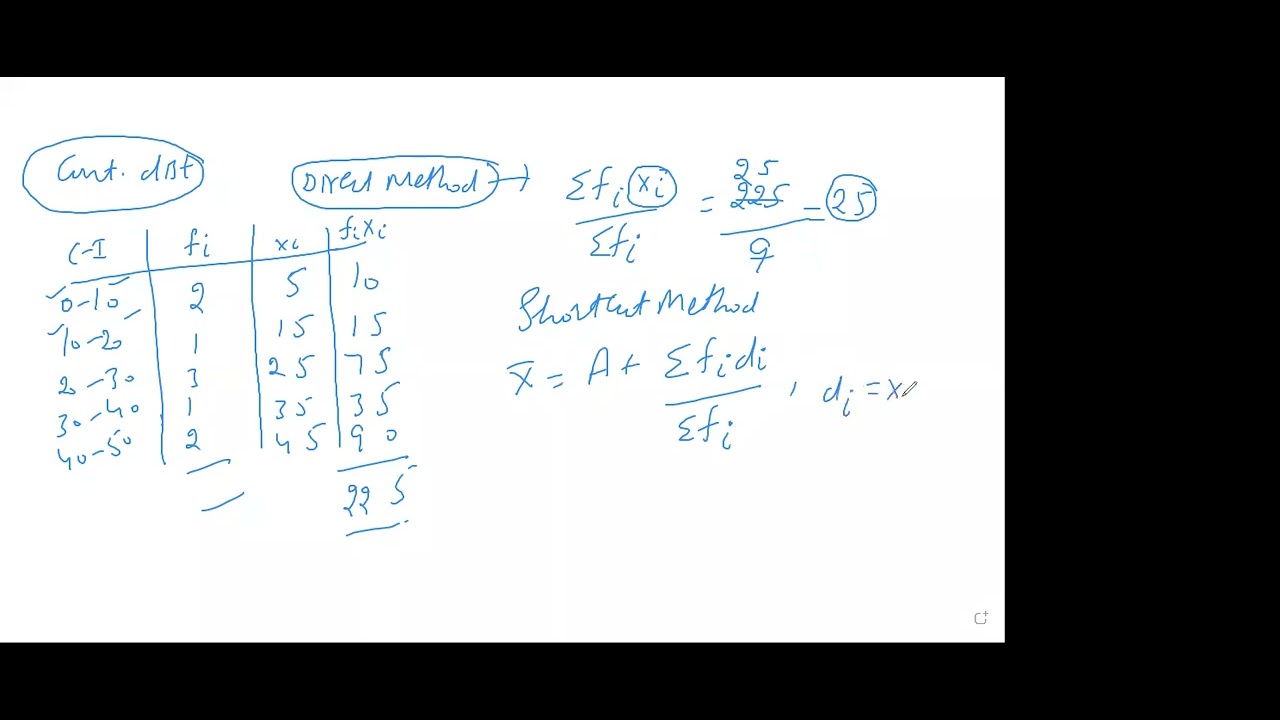 Cont. dist
Direct Method → Σfᵢxᵢ / Σfᵢ = 225 / 9 = 25
25
C-I | fᵢ | xᵢ | fᵢxᵢ
0-10 | 2 | 5 | 10
10-20 | 1 | 15 | 15
20-30 | 3 | 25 | 75
30-40 | 1 | 35 | 35
40-50 | 2 | 45 | 90
225
Shortcut Method
x̄ = A + Σfᵢdᵢ / Σfᵢ , dᵢ = x